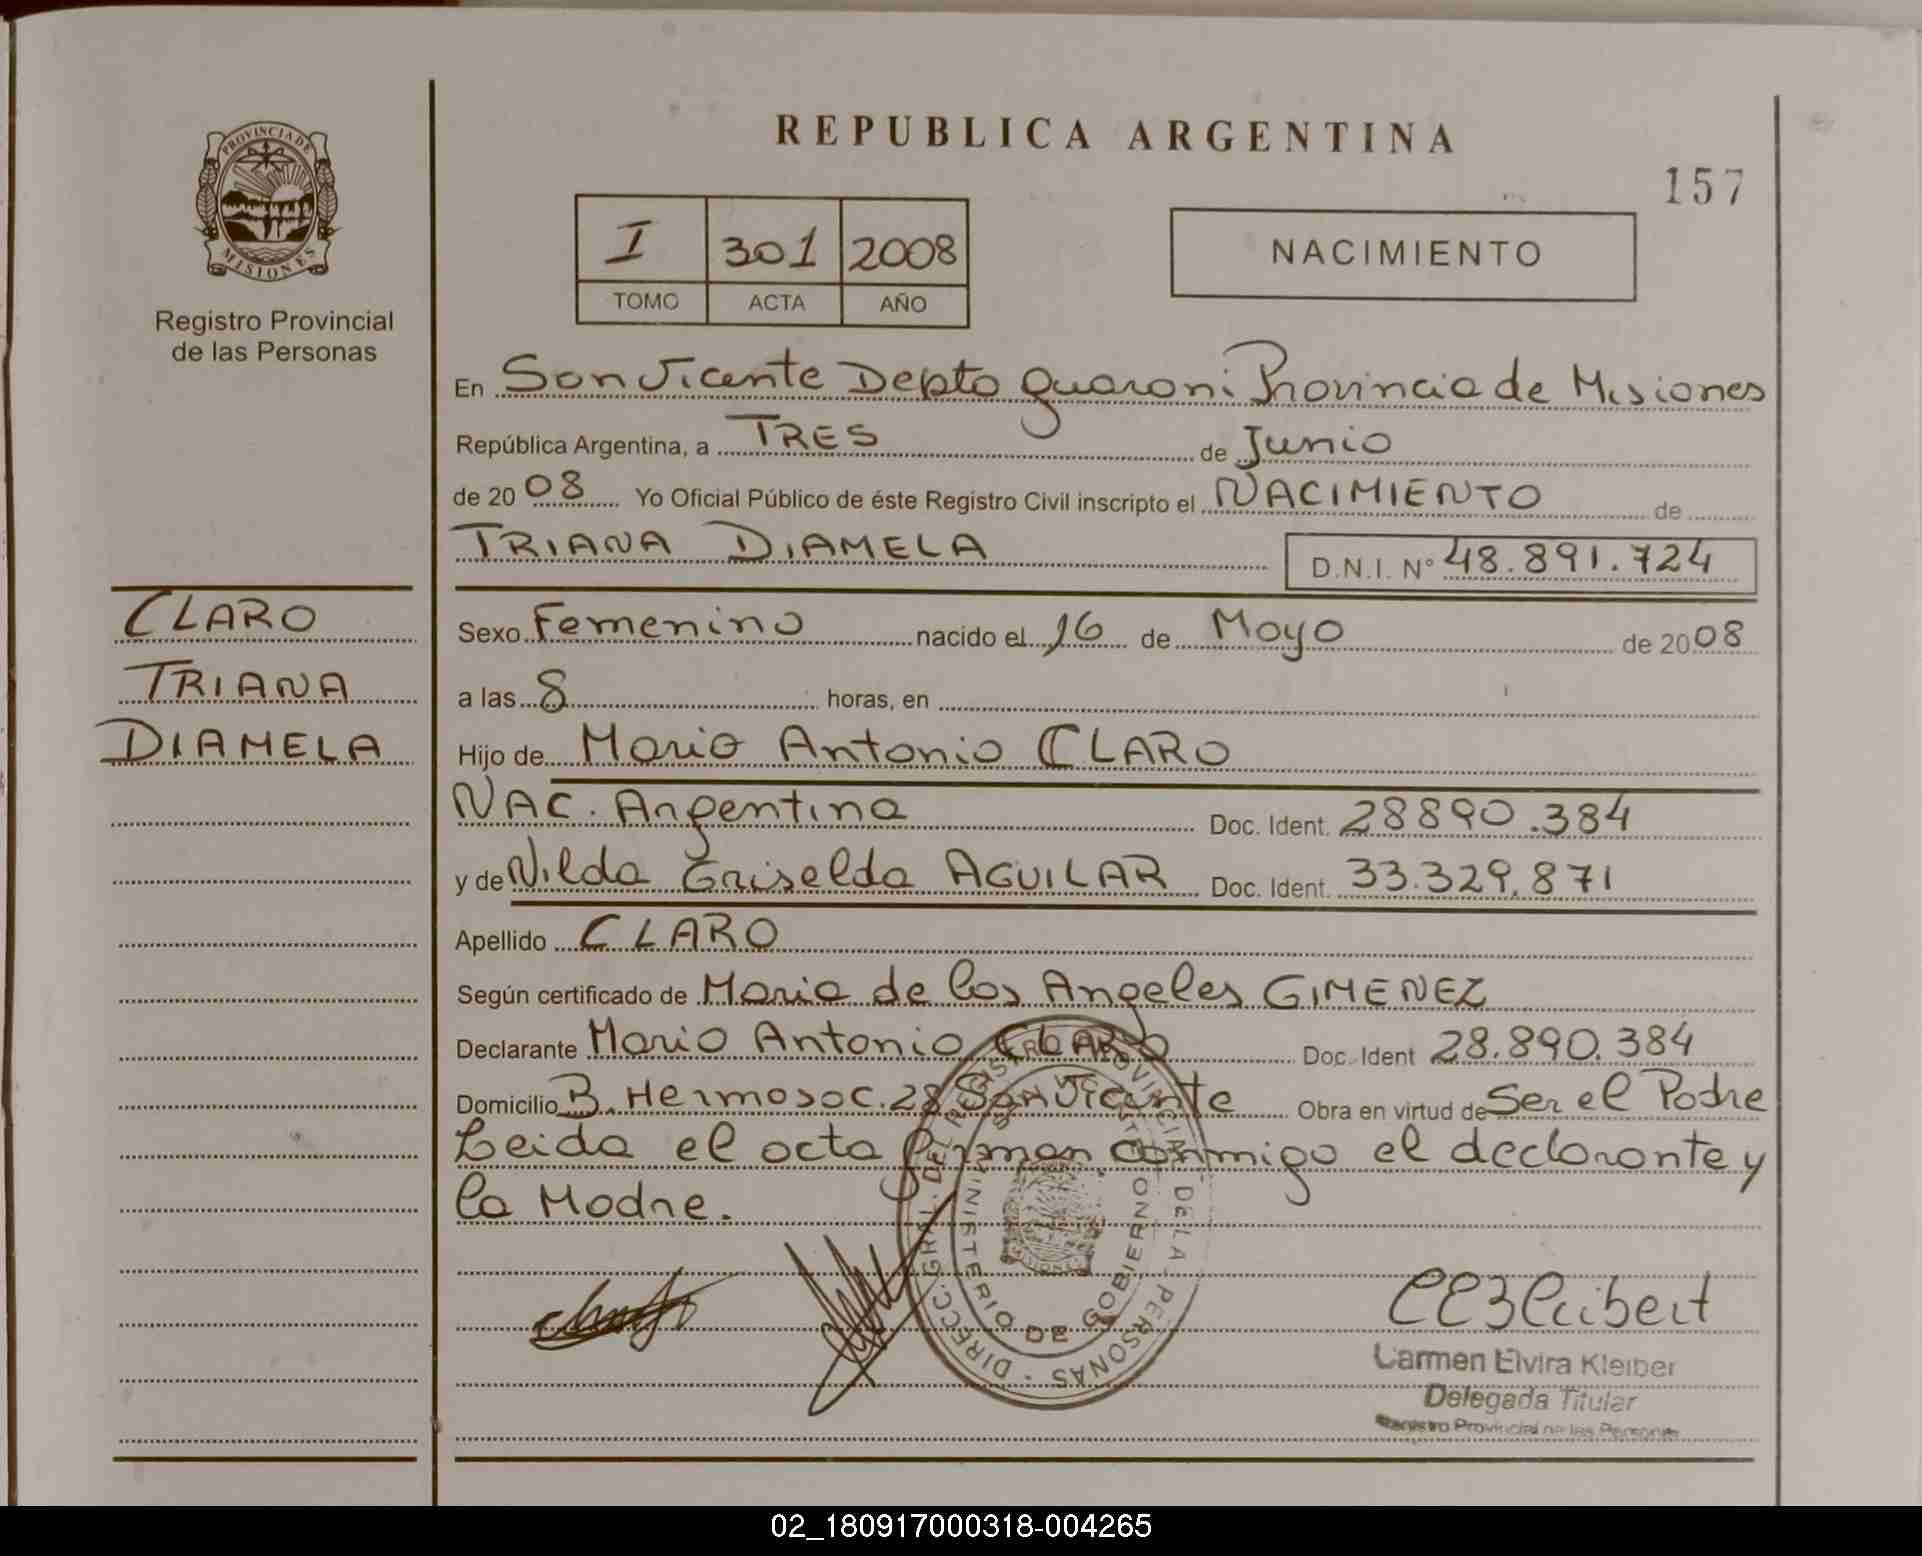 REPUBLICA ARGENTINA
157
PROVINCIA DE MISIONES
Registro Provincial
de las Personas
I 301 2008
TOMO ACTA AÑO
NACIMIENTO
En San Vicente Depto Guarani Provincia de Misiones
República Argentina, a TRES de Junio
de 2008 Yo Oficial Público de éste Registro Civil inscripto el NACIMIENTO de
TRIANA DIAMELA D.N.I. N° 48.891.724
CLARO
TRIANA
DIAMELA
Sexo Femenino nacido el 16 de Mayo de 2008
a las 8 horas, en
Hijo de Mario Antonio CLARO
NAC. Argentina Doc. Ident. 28890.384
y de Nilda Griselda AGUILAR Doc. Ident. 33.329.871
Apellido CLARO
Según certificado de Maria de los Angeles GIMENEZ
Declarante Mario Antonio CLARO Doc. Ident 28.890.384
Domicilio B. Hermoso C. 28 San Vicente Obra en virtud de Ser el Padre
Leida el acta firman conmigo el declarante y
la Madre.
DIRECC. GRAL. DEL REGISTRO PROVINCIAL DE LA PERSONAS
MINISTERIO DE GOBIERNO
Carmen Elvira Kleiber
Delegada Titular
Registro Provincial de las Personas
02_180917000318-004265